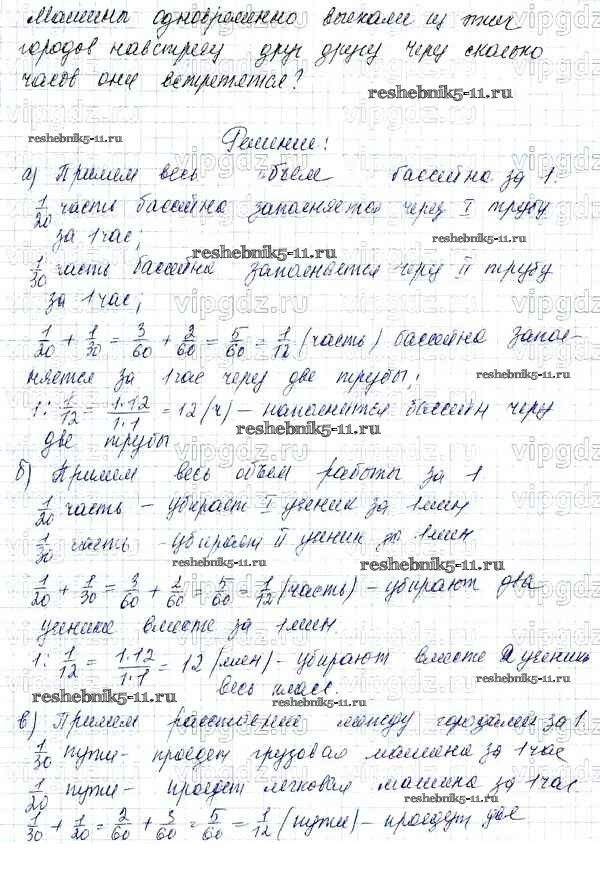 Машины одновременно выехали из этих
городов навстречу друг другу через сколько
часов они встретятся?
reshebnik5-11.ru
reshebnik5-11.ru
Решение:
а) Примем весь объем бассейна за 1.
1/20 часть бассейна заполняется через I трубу
за 1 час;
reshebnik5-11.ru
1/30 часть бассейна заполняется через II трубу
за 1 час;
1/20 + 1/30 = 3/60 + 2/60 = 5/60 = 1/12 (часть) бассейна запол-
няется за 1 час через две трубы;
reshebnik5-11.ru
1 : 1/12 = 1·12/1·1 = 12 (ч) – наполнится бассейн через
две трубы
reshebnik5-11.ru
б) Примем весь объем работы за 1
1/20 часть – убирает I ученик за 1 мин
1/30 часть – убирает II ученик за 1 мин
reshebnik5-11.ru
1/20 + 1/30 = 3/60 + 2/60 = 5/60 = 1/12 (часть) – убирают два
ученика вместе за 1 мин.
1 : 1/12 = 1·12/1·1 = 12 (мин) – убирают вместе 2 ученика
весь класс.
reshebnik5-11.ru
reshebnik5-11.ru
в) Примем расстояние между городами за 1.
1/30 пути – проедет грузовая машина за 1 час
1/20 пути – проедет легковая машина за 1 час.
reshebnik5-11.ru
1/30 + 1/20 = 2/60 + 3/60 = 5/60 = 1/12 (пути) – проедут две